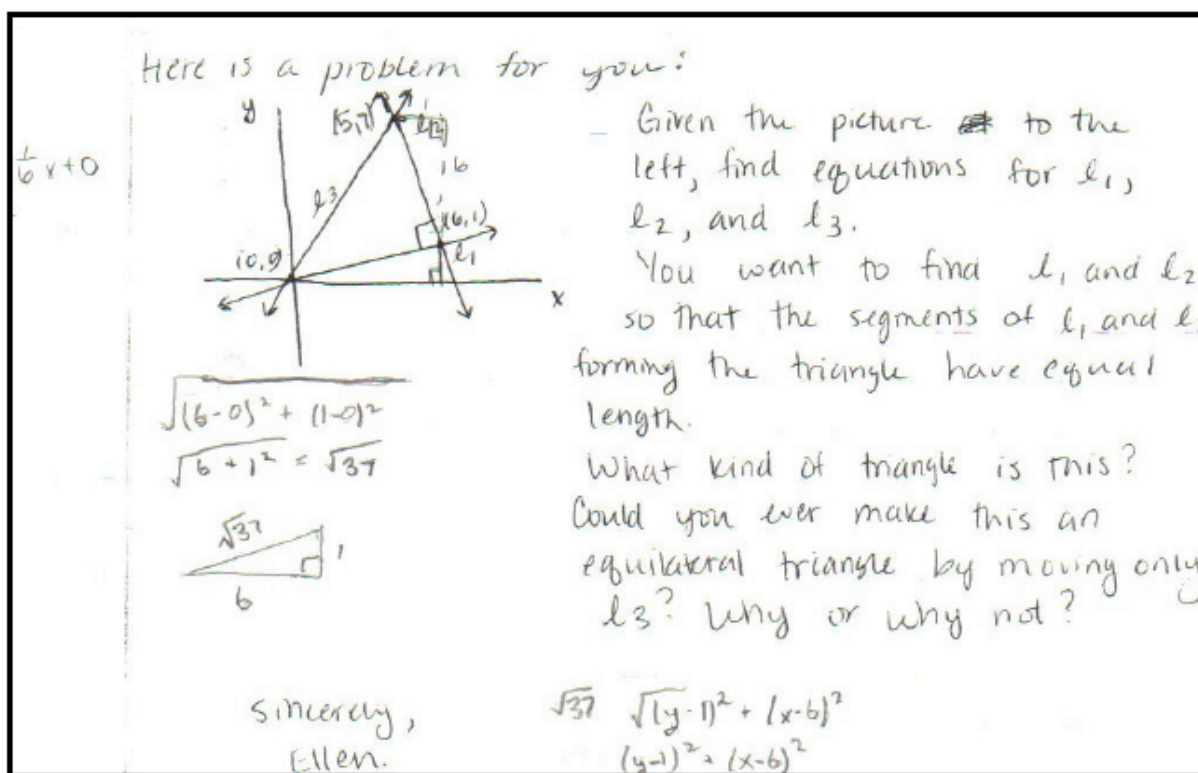 Here is a problem for you:
y
(5,7)
l2
Given the picture to the
1/6 x+0
6
left, find equations for l1,
l3
(6,1)
l2, and l3.
l1
x
You want to find l1 and l2
so that the segments of l1 and l
forming the triangle have equal
length.
√(6-0)² + (1-0)²
√6 + 1² = √37
What kind of triangle is this?
Could you ever make this an
√37
1
6
equilateral triangle by moving only
l3? Why or why not?
Sincerely,
Ellen.
√37 √(y-1)² + (x-6)²
(y-1)² + (x-6)²